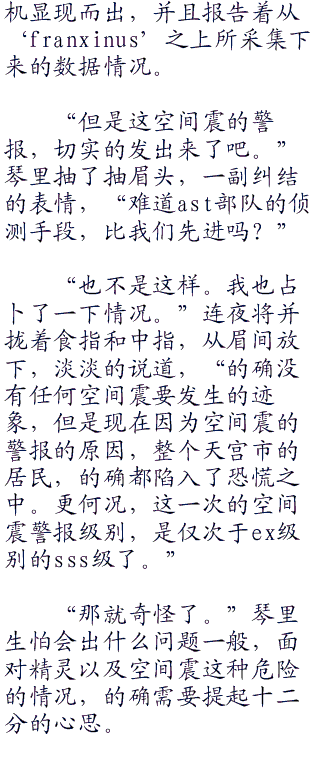 机显现而出，并且报告着从
‘franxinus’之上所采集下
来的数据情况。
“但是这空间震的警
报，切实的发出来了吧。”
琴里抽了抽眉头，一副纠结
的表情，“难道ast部队的侦
测手段，比我们先进吗？”
“也不是这样。我也占
卜了一下情况。”连夜将并
拢着食指和中指，从眉间放
下，淡淡的说道，“的确没
有任何空间震要发生的迹
象，但是现在因为空间震的
警报的原因，整个天宫市的
居民，的确都陷入了恐慌之
中。更何况，这一次的空间
震警报级别，是仅次于ex级
别的sss级了。”
“那就奇怪了。”琴里
生怕会出什么问题一般，面
对精灵以及空间震这种危险
的情况，的确需要提起十二
分的心思。